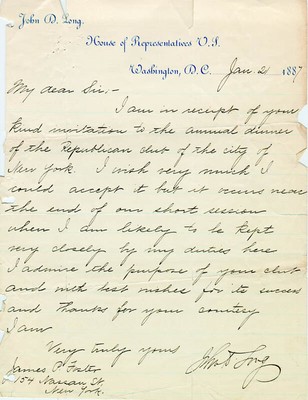 John D. Long.
House of Representatives U.S.
Washington, D.C. Jan. 2 1887
My dear Sir:-
I am in receipt of your
kind invitation to the annual dinner
of the Republican club of the city of
New York. I wish very much I
could accept it but it occurs near
the end of our short session
when I am likely to be kept
very closely by my duties here
I admire the purpose of your club
and with best wishes for its success
and thanks for your courtesy
I am
Very truly yours
John D Long
James P. Foster
154 Nassau St.
New York.